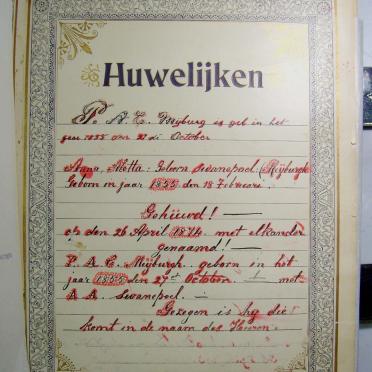 Huwelijken
P. A. C. Meyburg is geb in het
jaar 1855 den 27 di October
Anna Aletta: Geboren Swanepoel: Meijburgh
Geboren in jaar 1855 den 18 Februarie.
Gehüwd! —
op den 26 April 1874 met elkander
genaamd! —
P. A. C. Meijburgh. geboren in het
jaar 1855 den 27st October. — met
A. A. Swanepoel. —
Gezegen is hij die
komt in de naam des Heeren